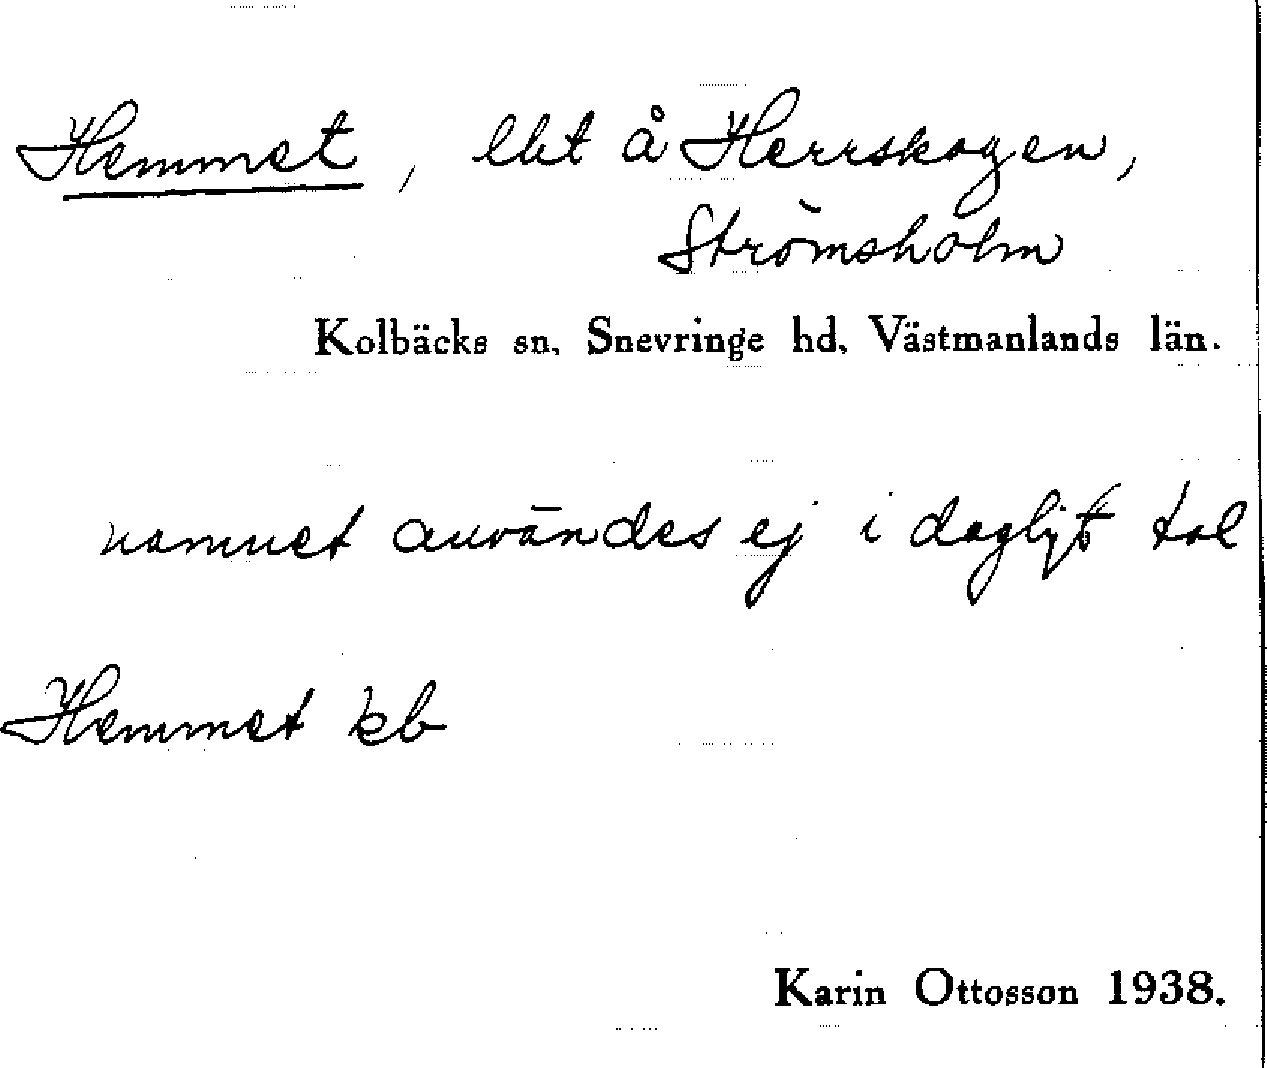 Hemmet, lht å Herrskogen,
Strömsholm
Kolbäcks sn, Snevringe hd, Västmanlands län.
namnet användes ej i dagligt tal
Hemmet kb
Karin Ottosson 1938.